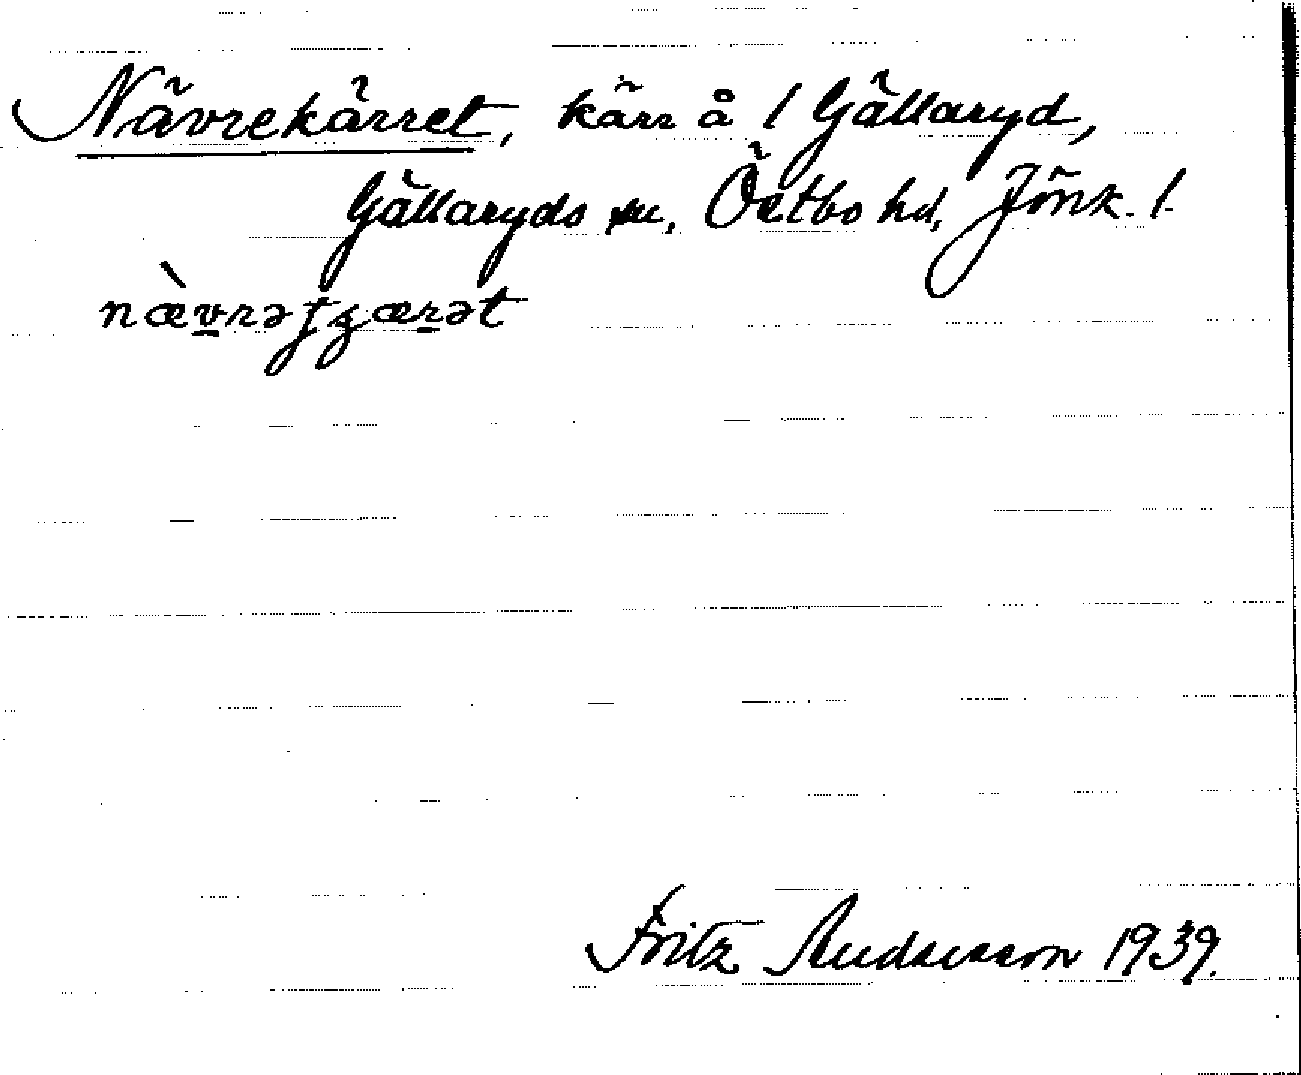 Nävrekärret, kärr å 1 Gällaryd,
Gällaryds sn, Östbo hd, Jönk. l.
nævrəʃʒærət
Fritz Andersson 1939.